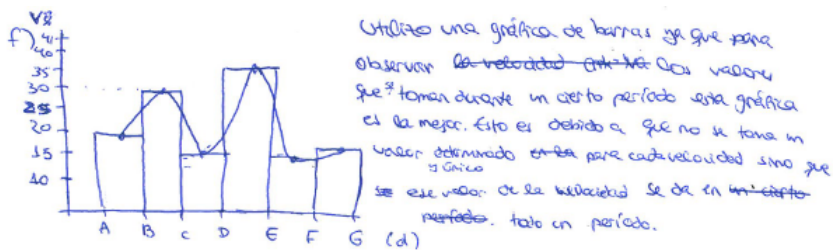 f)
41
40
35
30
25
20
15
10
A B C D E F G (d)
Utilizo una gráfica de barras ya que para
observar la velocidad los valores
que toman durante un cierto período esta gráfica
es la mejor. Esto es debido a que no se toma un
valor determinado para cada velocidad sino que
y único
se ese valor de la velocidad se da en un cierto
período. todo un período.